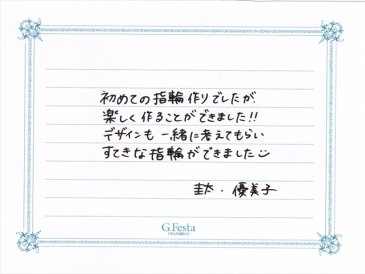 初めての指輪作りでしたが
楽しく作ることができました!!
デザインも一緒に考えてもらい
すてきな指輪ができました
圭太・優美子
G.Festa